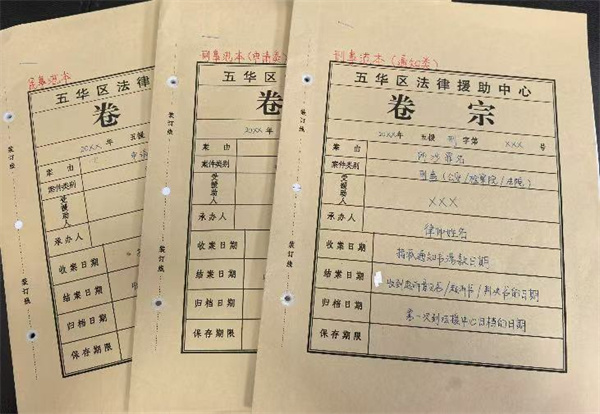 民事范本
五华区法律
卷
20XX 年 五援
案由
案件类别
受援助人
承办人
收案日期
结案日期
归档日期
保存期限
装订线
装订线
刑事范本(申请类)
五华区法律
卷
20XX 年
案由
案件类别
受援助人
承办人
收案日期
结案日期
归档日期
保存期限
装订线
装订线
刑事范本(通知类)
五华区法律援助中心
卷宗
20XX年 五援 刑 字第 XXX 号
案由 所涉罪名
案件类别 刑事(公安/检察院/法院)
受援助人 XXX
承办人 律师姓名
收案日期 指派通知书落款日期
结案日期 收到起诉意见书/起诉书/判决书的日期
归档日期 第一次到法援中心归档的日期
保存期限
装订线
装订线